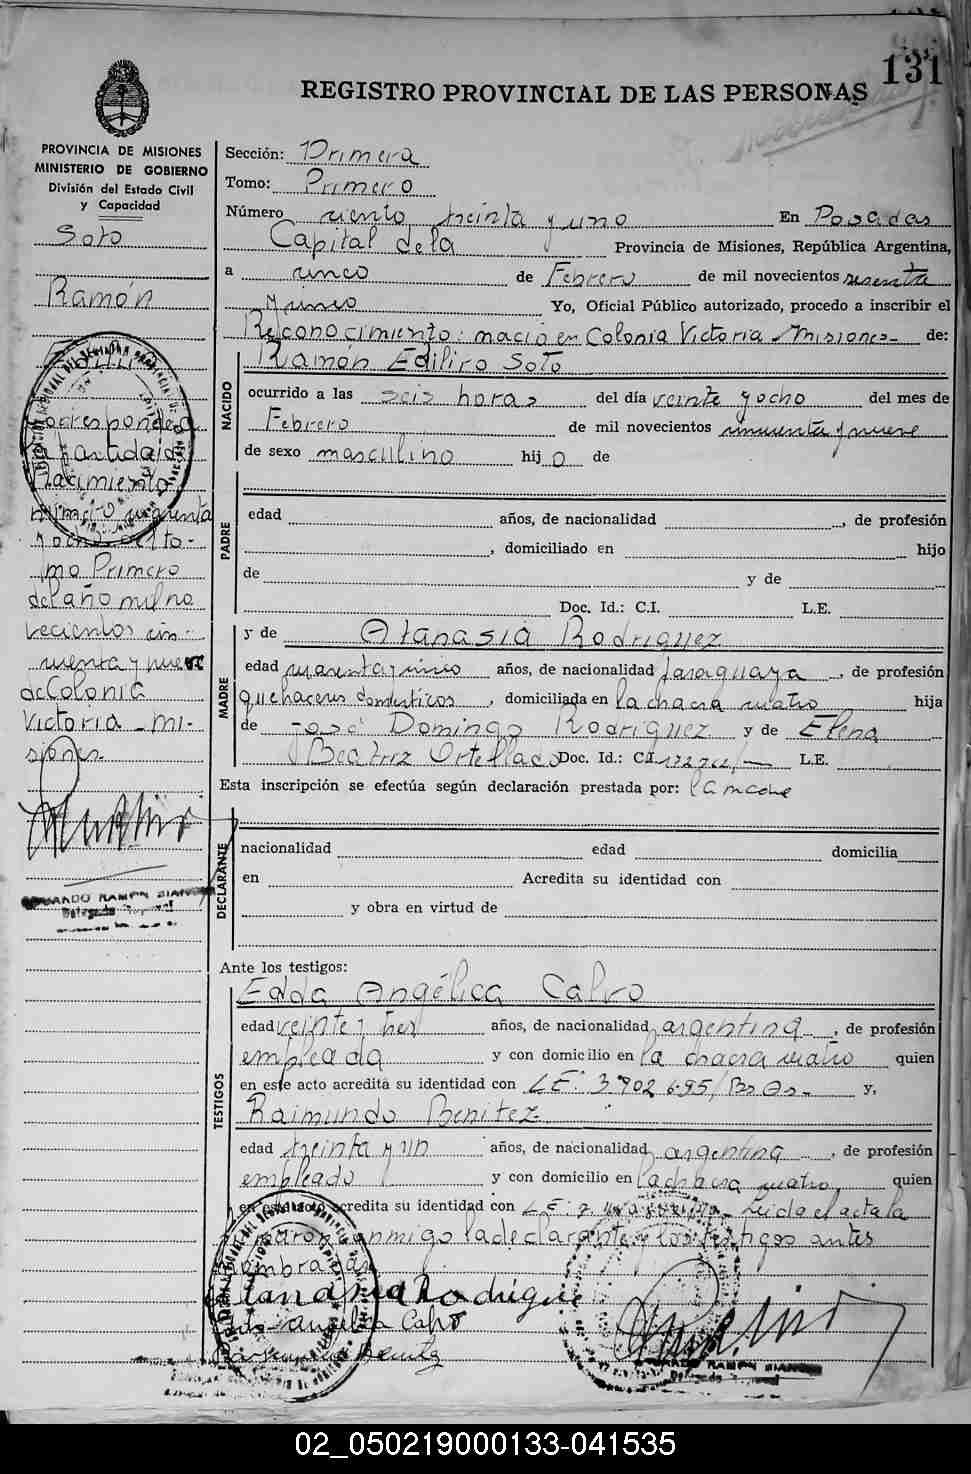 131
REGISTRO PROVINCIAL DE LAS PERSONAS
PROVINCIA DE MISIONES
MINISTERIO DE GOBIERNO
División del Estado Civil
y Capacidad
Soto
Ramón
Corresponde a
la partida de
Nacimiento
y ocho del to-
mo Primero
del año mil no
vecientos cin-
cuenta y nueve
de Colonia
Victoria - Mi-
siones.
EDUARDO RAMON BIANCHI
Delegado Regional
Sección: Primera
Tomo: Primero
Número ciento treinta y uno En Posadas
Capital de la Provincia de Misiones, República Argentina,
a cinco de Febrero de mil novecientos sesenta
y cinco Yo, Oficial Público autorizado, procedo a inscribir el
Reconocimiento: nació en Colonia Victoria - Misiones - de:
NACIDO
Ramón Ediliro Soto
ocurrido a las seis horas del día veinte y ocho del mes de
Febrero de mil novecientos cincuenta y nueve
de sexo masculino hij o de
PADRE
edad años, de nacionalidad , de profesión
, domiciliado en hijo
de y de
Doc. Id.: C.I. L.E.
MADRE
y de Atanasia Rodriguez
edad cuarenta y cinco años, de nacionalidad paraguaya , de profesión
quehaceres domesticos , domiciliada en la chacra cuatro hija
de José Domingo Rodriguez y de Elena
Beatriz Ortellado Doc. Id.: C.I. L.E.
Esta inscripción se efectúa según declaración prestada por: la madre
DECLARANTE
nacionalidad edad domicilia
en Acredita su identidad con
y obra en virtud de
Ante los testigos:
TESTIGOS
Edda Angélica Calvo
edad veinte y tres años, de nacionalidad argentina , de profesión
empleada y con domicilio en la chacra cuatro quien
en este acto acredita su identidad con L.E: 3.902.695/Bs As- y,
Raimundo Benitez
edad treinta y un años, de nacionalidad argentina , de profesión
empleado y con domicilio en la chacra cuatro quien
en este acto acredita su identidad con L.E: Leida el acta la
firmaron conmigo la declarante y los testigos antes
nombrados
Atanasia Rodrigue
Angelica Calvo
Benitez
EDUARDO RAMON BIANCHI
Delegado Regional
02_050219000133-041535